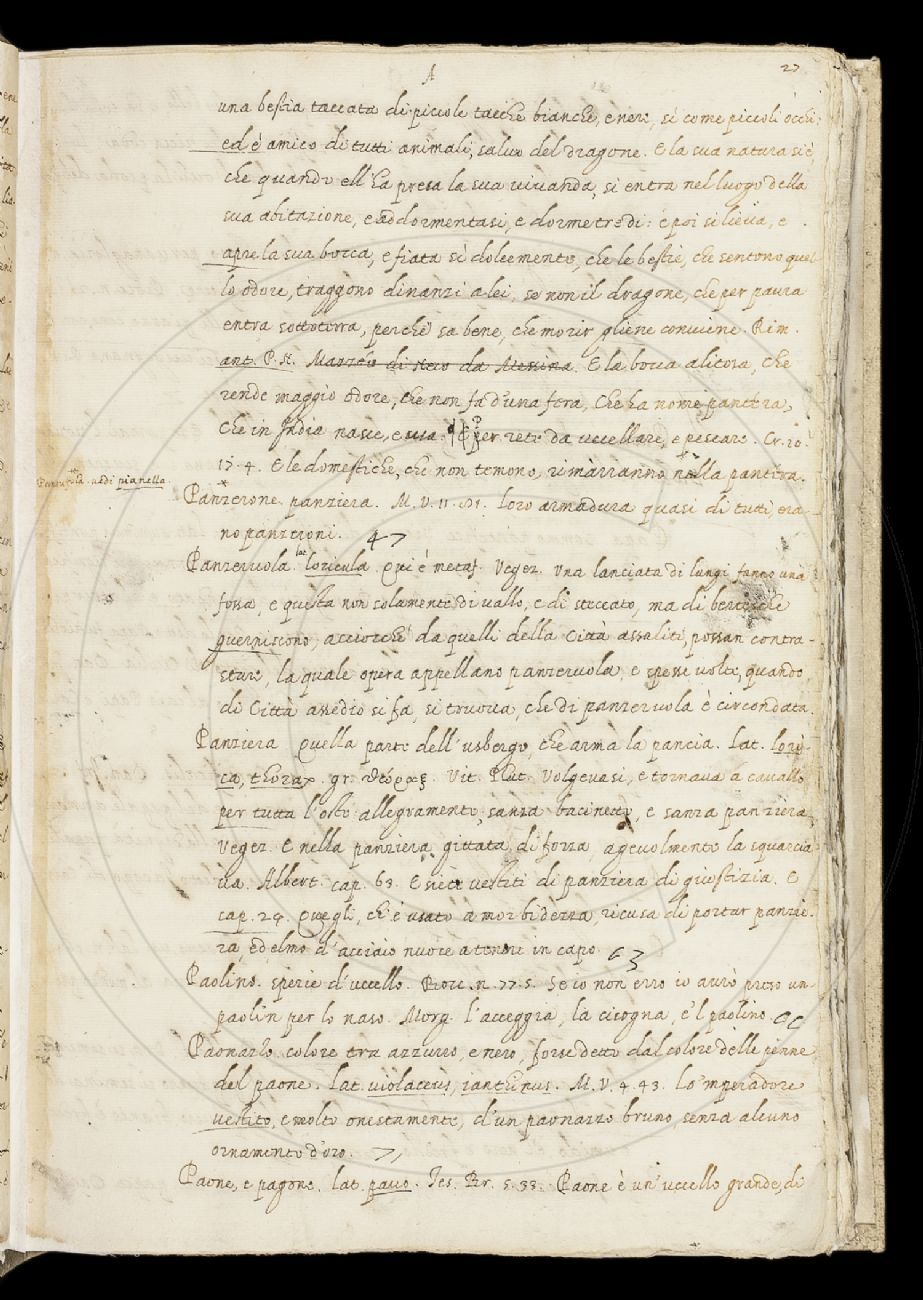 A
27
una bestia taccata di piccole tacche bianche, e nere, sì come piccoli occhi:
ed è amico di tutti animali, salvo del dragone. E la sua natura si è,
che quando ell'ha presa la sua vivanda, si entra nel luogo della
sua abitazione, e addormentasi, e dorme tre dì: e poi si lieva, e
apre la sua bocca, e fiata sì dolcemente, che le bestie, che sentono quel-
lo odore, traggono dinanzi a lei, se non il dragone, che per paura
entra sottoterra, perchè sa bene, che morir gliene conviene. Rim.
ant. P. N. da Messina. E la bocca aliosa, che
rende maggio odore, che non fa d'una fera, Che ha nome pantera,
Che in India nasce, e usa. per rete da uccellare, e pescare. Cr. 10.
17. 4. E le domestiche, che non temono, rimarranno nella pantera.
vedi pianella.
Panzerone. panziera. M. V. 11. 81. Loro armadura quasi di tutti, era-
no panzeroni. 47
Panzeruola. lat. loricula. Qui è metaf. Vegez. Una lanciata di lungi fanno una
fossa, e questa non solamente di vallo, e di steccato, ma di bertesche
guerniscono, acciocchè da quelli della Città assaliti, possan contra-
stare, la quale opera appellano panzeruola, e spesse volte, quando
di Città assedio si fa, si truova, che di panzeruola è circondata.
Panziera Quella parte dell'usbergo, che arma la pancia. Lat. lori-
ca, thorax. gr. θώραξ. Vit. Plut. Volgevasi, e tornava a cavallo
per tutta l'oste allegramente, sanza bacinetto, e sanza panziera.
Vegez. E nella panziera gittata di forza, agevolmente la squarcia-
va. Albert. cap. 63. E siete vestiti di panziera di giustizia. E
cap. 29. Quegli, ch'è usato a morbidezza, ricusa di portar panzie-
ra, ed elmo d'acciaio nuoce a tenere in capo. 63
Paolino. spezie d'uccello. Bocc. n. 77. 5. Se io non erro io avrò preso un
paolin per lo naso. Morg. l'acceggia, la cicogna, e 'l paolino.
Paonazzo. colore tra azzurro, e nero, forse detto dal colore delle penne
del paone. Lat. violaceus, ianthinus. M. V. 4. 43. Lo 'mperadore
vestito, e molto onestamente, d'un paonazzo bruno, senza alcuno
ornamento d'oro.
Paone, e pagone. lat. pavo. Tes. Br. 5. 33. Paone è un uccello grande, di